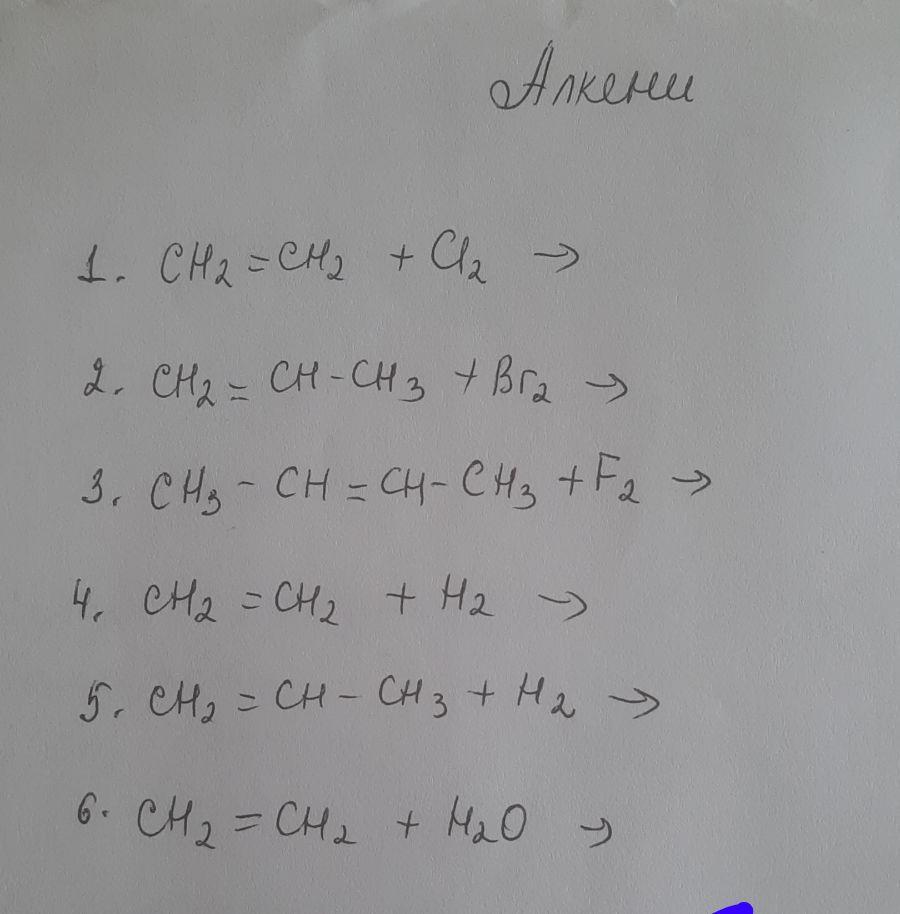 Алкени
1. CH₂=CH₂ + Cl₂ →
2. CH₂=CH-CH₃ + Br₂ →
3. CH₃-CH=CH-CH₃ + F₂ →
4. CH₂=CH₂ + H₂ →
5. CH₂=CH-CH₃ + H₂ →
6. CH₂=CH₂ + H₂O →